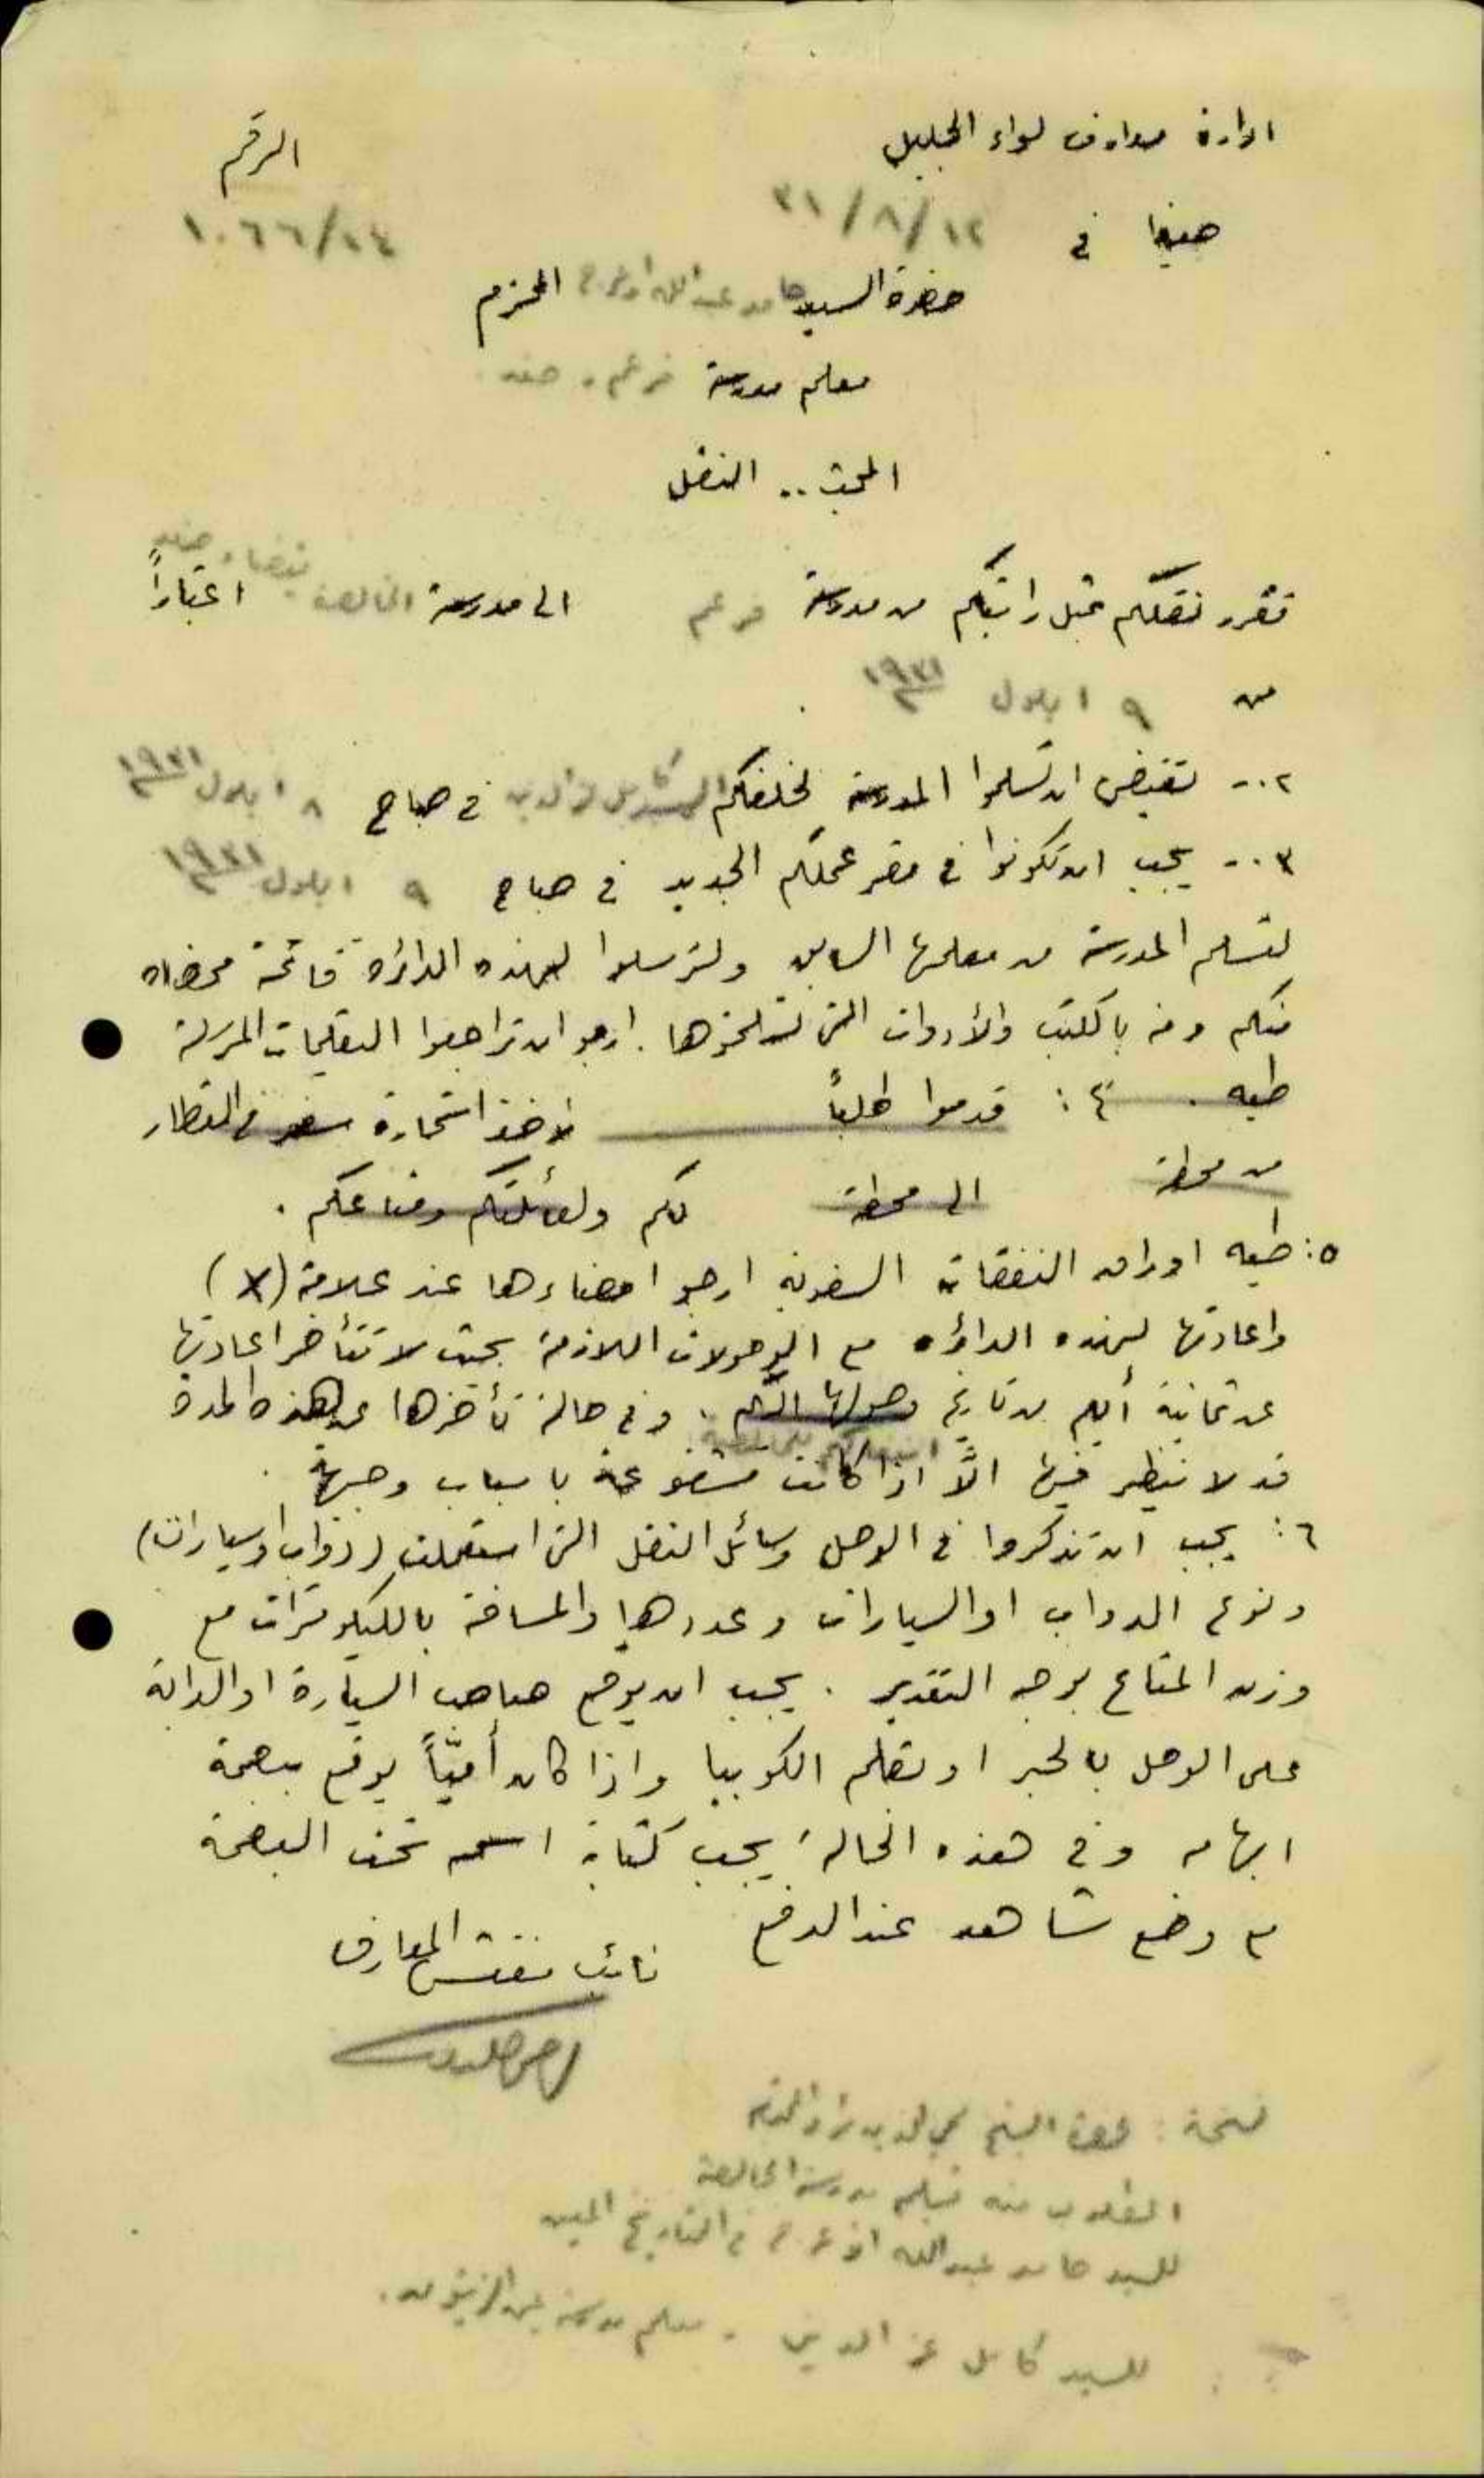 ادارة معارف لواء الجليل
الرقم
حيفا في ١٢/٨/٣١
١٠٦٦/٢٤
حضرة السيد حامد عبد الله المحترم
معلم مدرسة فرعم . صفد
المبحث .. النقل
تقرر نقلكم قبل راتبكم من مدرسة فرعم الى مدرسة الخالصة بقضاء صفد اعتباراً
من ٩ ايلول ١٩٣١
٢ .. تقتضي ان تسلموا المدرسة لخلفكم السيد كامل عز الدين في صباح ٨ ايلول ١٩٣١
٣ .. يجب ان تكونوا في مقر عملكم الجديد في صباح ٩ ايلول ١٩٣١
لتسلم المدرسة من معلمها السابق ولترسلوا لهذه الدائرة قائمة ممضاه
منكم ومنه بالكتب والأدوات التي تستلموها . ارجو ان تراجعوا التعليمات المرسلة
طيه . ٤ : قدموا طلباً لاخذ استمارة سفر في القطار
من محطة الى محطة لكم ولعائلتكم ومتاعكم .
٥ : طيه اوراق النفقات السفرية ارجو امضاءها عند علامة (X)
واعادتها لهذه الدائره مع الوصولات اللازمة بحيث لا تتأخر اعادتها
عن ثمانية أيام من تاريخ وصولها اليكم . وفي حالة تأخرها عن هذه المدة
قد لا ينظر فيها الّا اذا كانت مشفوعة باسباب وجيهة .
٦ : يجب ان تذكروا في الوصل وسائل النقل التي استعملت (دواب او سيارات)
ونوع الدواب او السيارات وعددها والمسافة بالكيلومترات مع
وزن المتاع بوجه التقدير . يجب ان يوقع صاحب السيارة او الدابة
على الوصل بالحبر او بقلم الكوبيا واذا كان أميّاً يوقع ببصمة
ابهامه وفي هذه الحالة يجب كتابة اسمه تحت البصمة
مع وضع شاهد عند الدفع
نائب مفتش المعارف
نسخة : لحضرة الشيخ
المطلوب منه تسليم مدرسة الخالصة
للسيد حامد عبد الله في التاريخ المعين
للسيد كامل عز الدين . معلم مدرسة عين الزيتون .